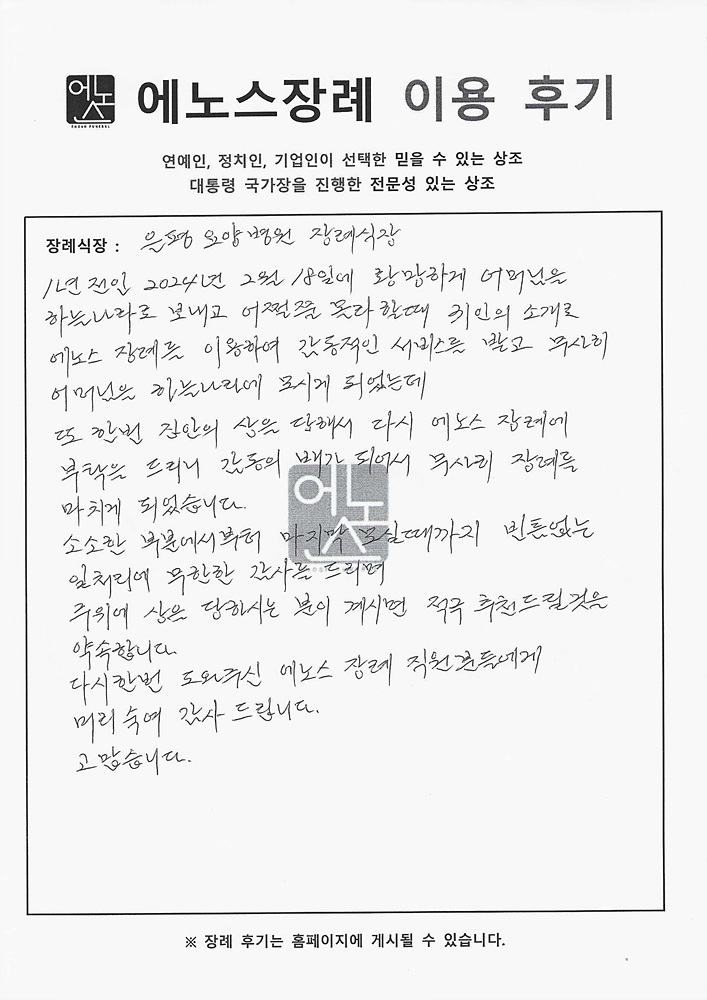 에노스
ENOSH FUNERAL
에노스장례 이용 후기
연예인, 정치인, 기업인이 선택한 믿을 수 있는 상조
대통령 국가장을 진행한 전문성 있는 상조
장례식장 : 은평 요양병원 장례식장
1년 전인 2024년 2월 18일에 황망하게 어머님을
하늘나라로 보내고 어쩔줄 못라 할때 귀인의 소개로
에노스 장례를 이용하여 감동적인 서비스를 받고 무사히
어머님을 하늘나라에 모시게 되었는데
또 한번 집안의 상을 당해서 다시 에노스 장례에
부탁을 드리니 감동의 배가 되어서 무사히 장례를
마치게 되었습니다.
소소한 부분에서부터 마지막 모실때까지 빈틈없는
일처리에 무한한 감사를 드리며
주위에 상을 당하시는 분이 계시면 적극 추천드릴것을
약속합니다.
다시한번 도와주신 에노스 장례 직원분들에게
머리숙여 감사 드립니다.
고맙습니다.
에노스
※ 장례 후기는 홈페이지에 게시될 수 있습니다.